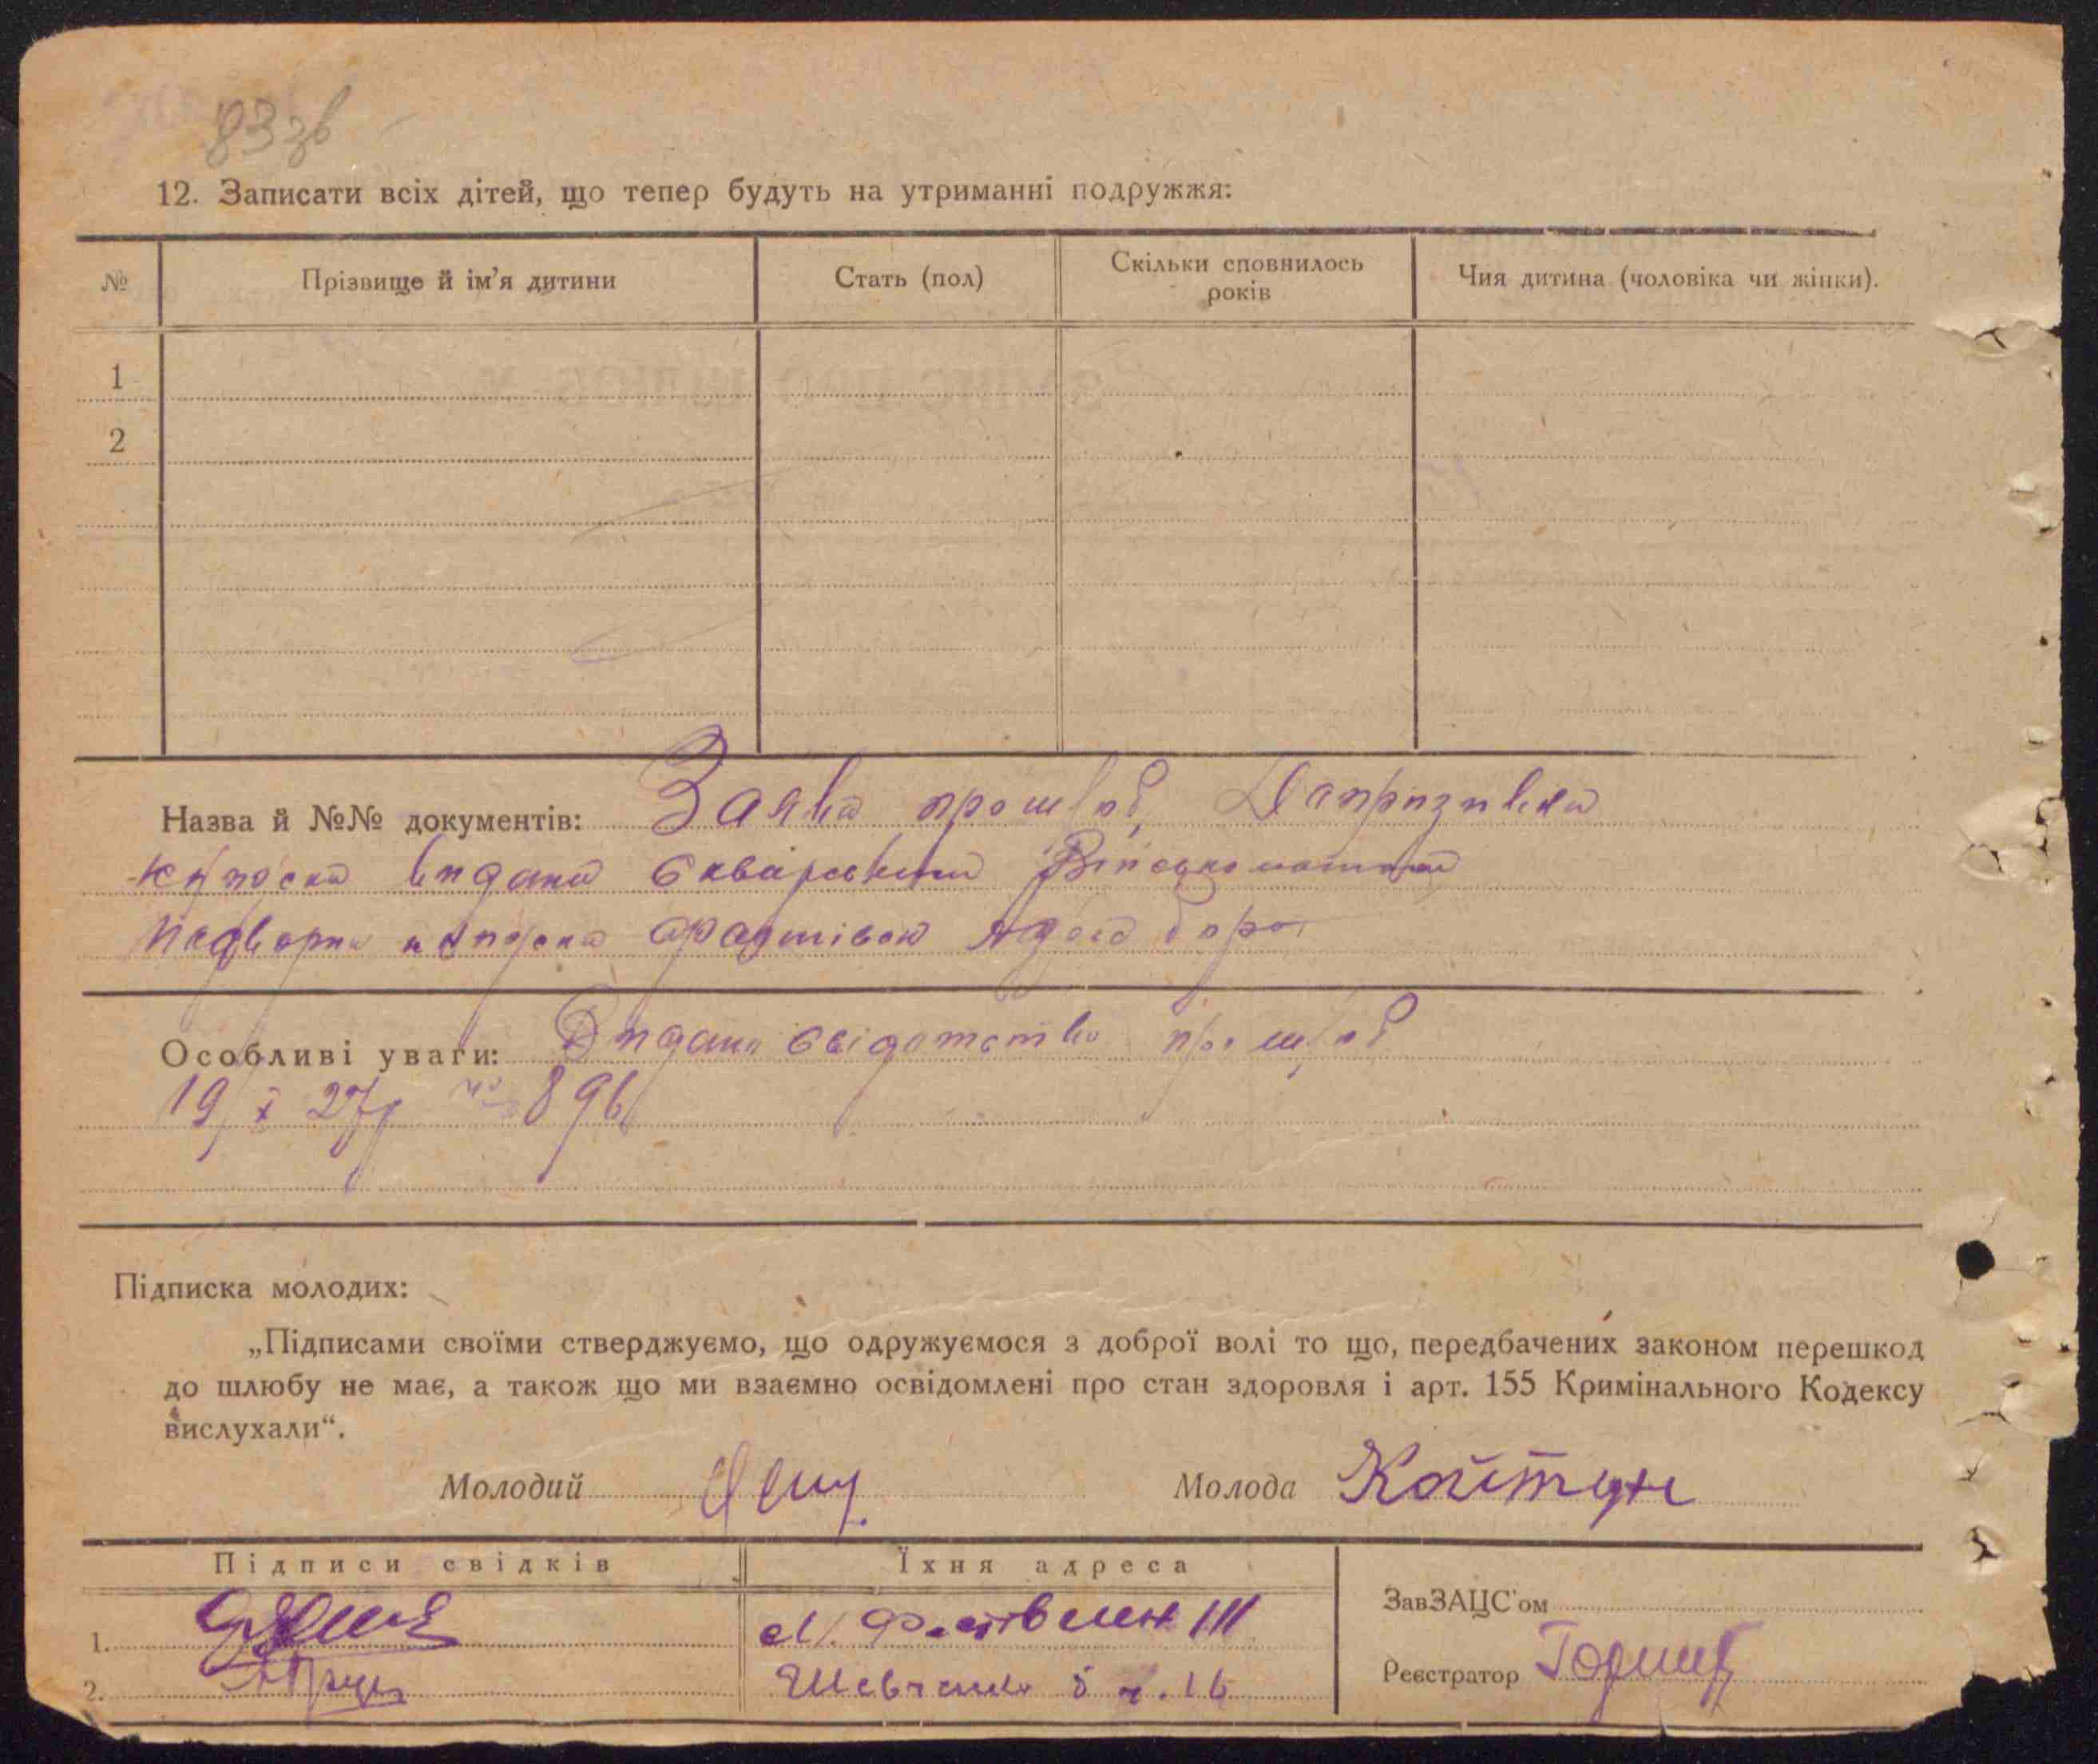 83зв
12. Записати всіх дітей, що тепер будуть на утриманні подружжя:
№ Прізвище й ім’я дитини Стать (пол) Скільки сповнилось років Чия дитина (чоловіка чи жінки).
1
2
Назва й №№ документів: Заява про шлюб, Допризивна
карточка видана Сквирським Військоматом
подворна карточка
Особливі уваги: Видано свідотство про шлюб
19/X 27р № 896
Підписка молодих:
„Підписами своїми стверджуємо, що одружуємося з доброї волі то що, передбачених законом перешкод
до шлюбу не має, а також що ми взаємно освідомлені про стан здоровля і арт. 155 Кримінального Кодексу
вислухали“.
Молодий Молода Койтун
Підписи свідків Їхня адреса
ЗавЗАЦС’ом
1.
2. Шевченко 5 16
Реєстратор